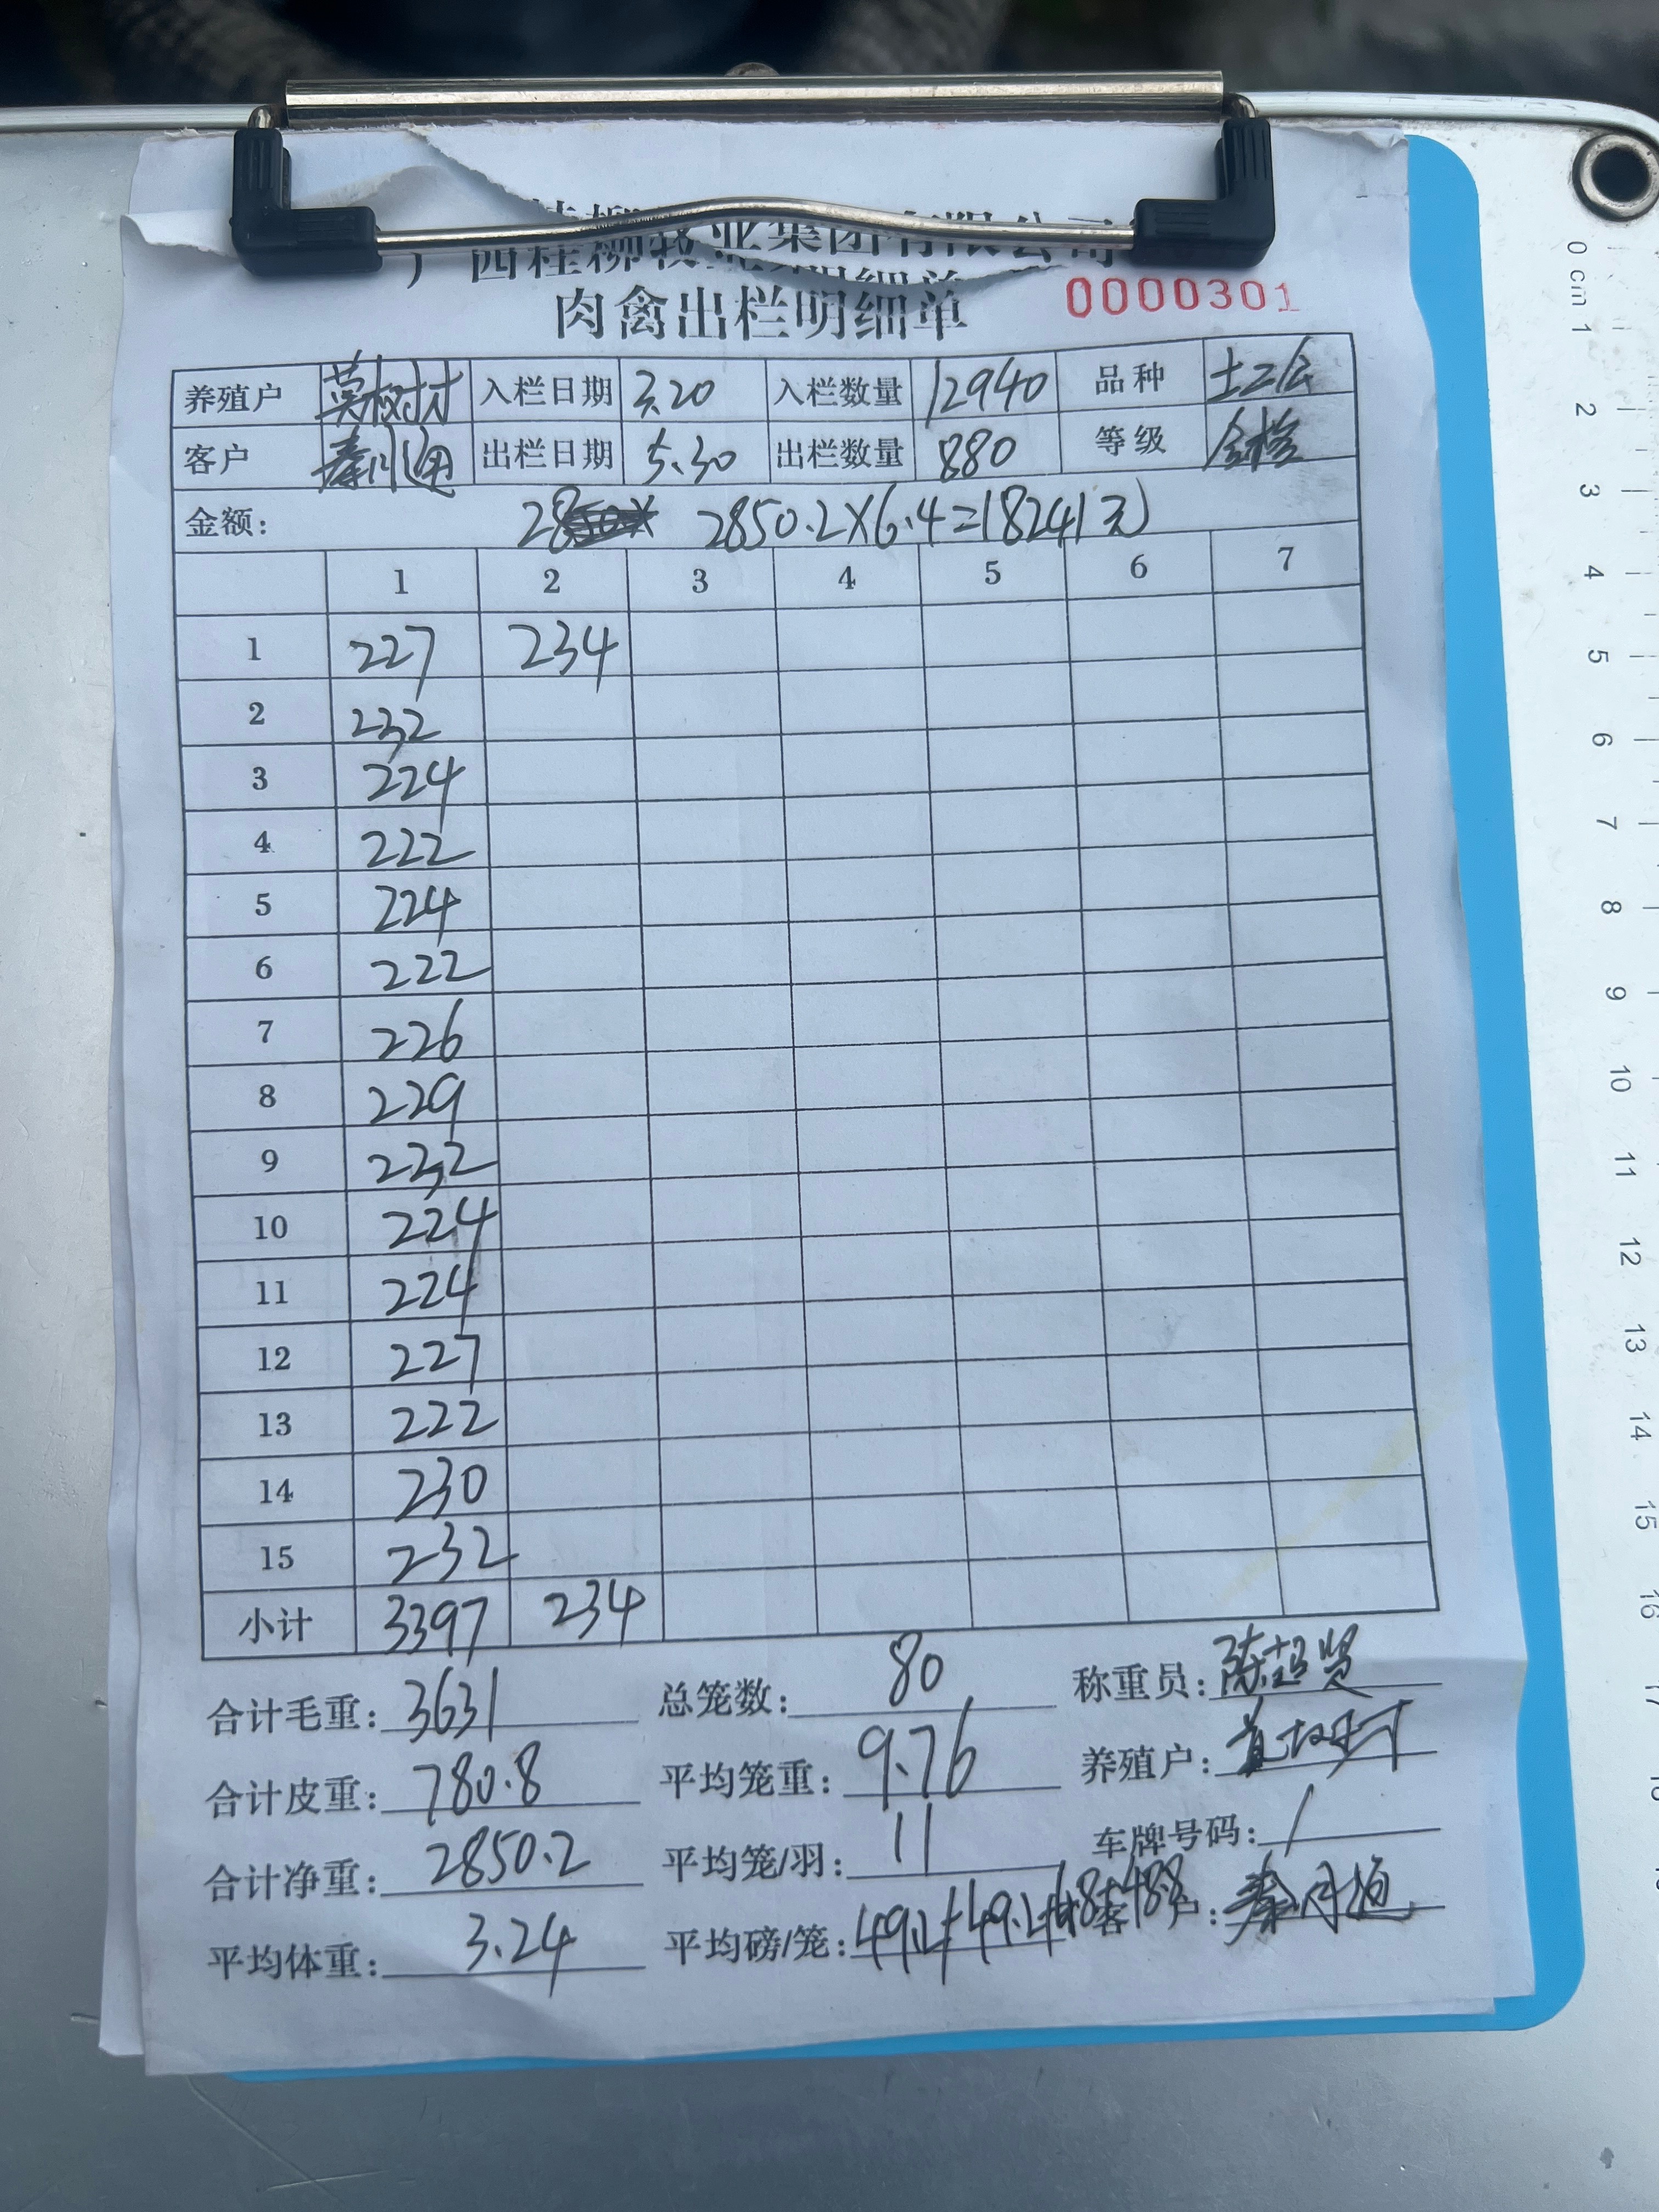 广西桂柳牧业集团有限公司
肉禽出栏明细单 0000301
养殖户 莫树才 入栏日期 3.20 入栏数量 12940 品种 土二公
客户 秦月通 出栏日期 5.30 出栏数量 880 等级 合格
金额: 2850.2×6.4=18241元
1 2 3 4 5 6 7
1 227 234
2 232
3 224
4 222
5 224
6 222
7 226
8 229
9 232
10 224
11 224
12 227
13 222
14 230
15 232
小计 3397 234
合计毛重: 3631 总笼数: 80 称重员: 陈超贤
合计皮重: 780.8 平均笼重: 9.76 养殖户:
合计净重: 2850.2 平均笼/羽: 11 车牌号码: /
平均体重: 3.24 平均磅/笼: 49.2+49.2+48+48.8 客户:
0 cm 1 2 3 4 5 6 7 8 9 10 11 12 13 14 15 16 17